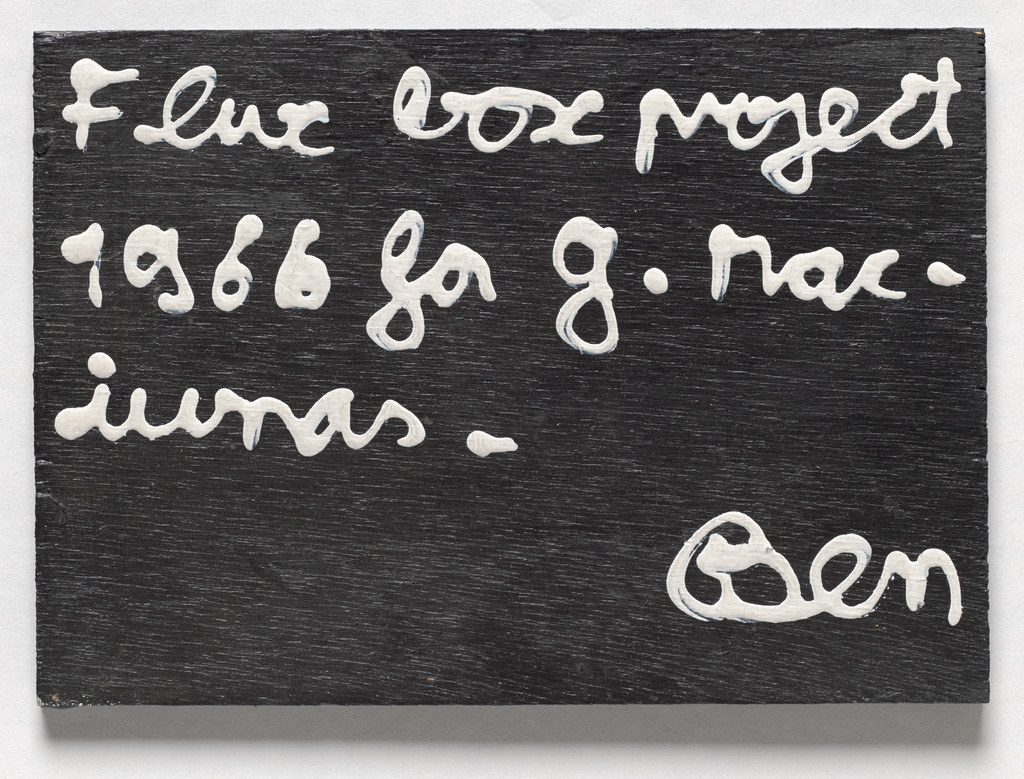 Flux box project
1966 for g. Mac-
iunas.-
Ben